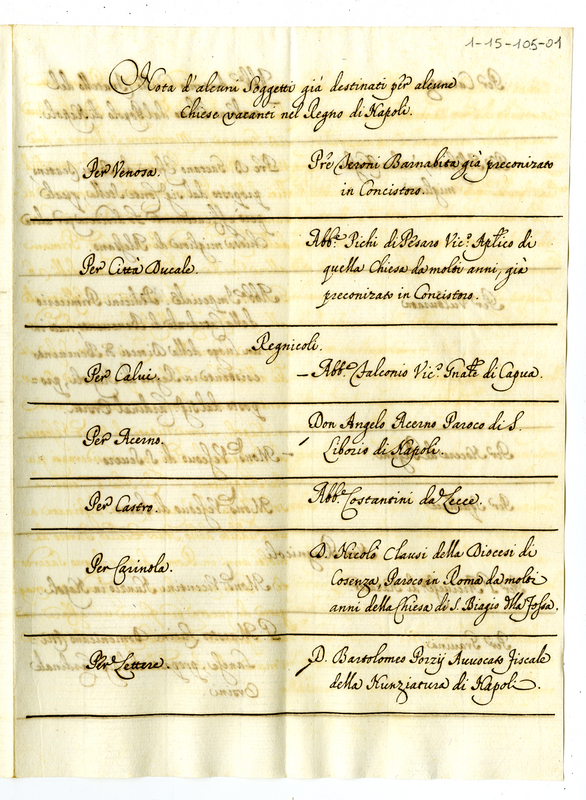 1-15-105-01
Nota d'alcuni Soggetti già destinati per alcune
Chiese vacanti nel Regno di Napoli.
Per Venosa.
Pre Barnabita già preconizato
in Concistoro.
Per Città Ducale.
Abb.e Pichi di Pesaro Vic.o Aplico di
quella Chiesa da molti anni, già
preconizato in Concistoro.
Regnicoli.
Per Calvi.
Abb.e Falconio Vic.o Gnale di Capua.
Per Acerno.
Don Angelo Acerno Paroco di S.
Liborio di Napoli.
Per Castro.
Abb.e Costantini da Lecce.
Per Carinola.
D. Nicolò Clausi della Diocesi di
Cosenza, Paroco in Roma da molti
anni della Chiesa di S. Biagio della Fossa.
Per Lettere
D. Bartolomeo Porzij Avvocato Fiscale
della Nunziatura di Napoli.